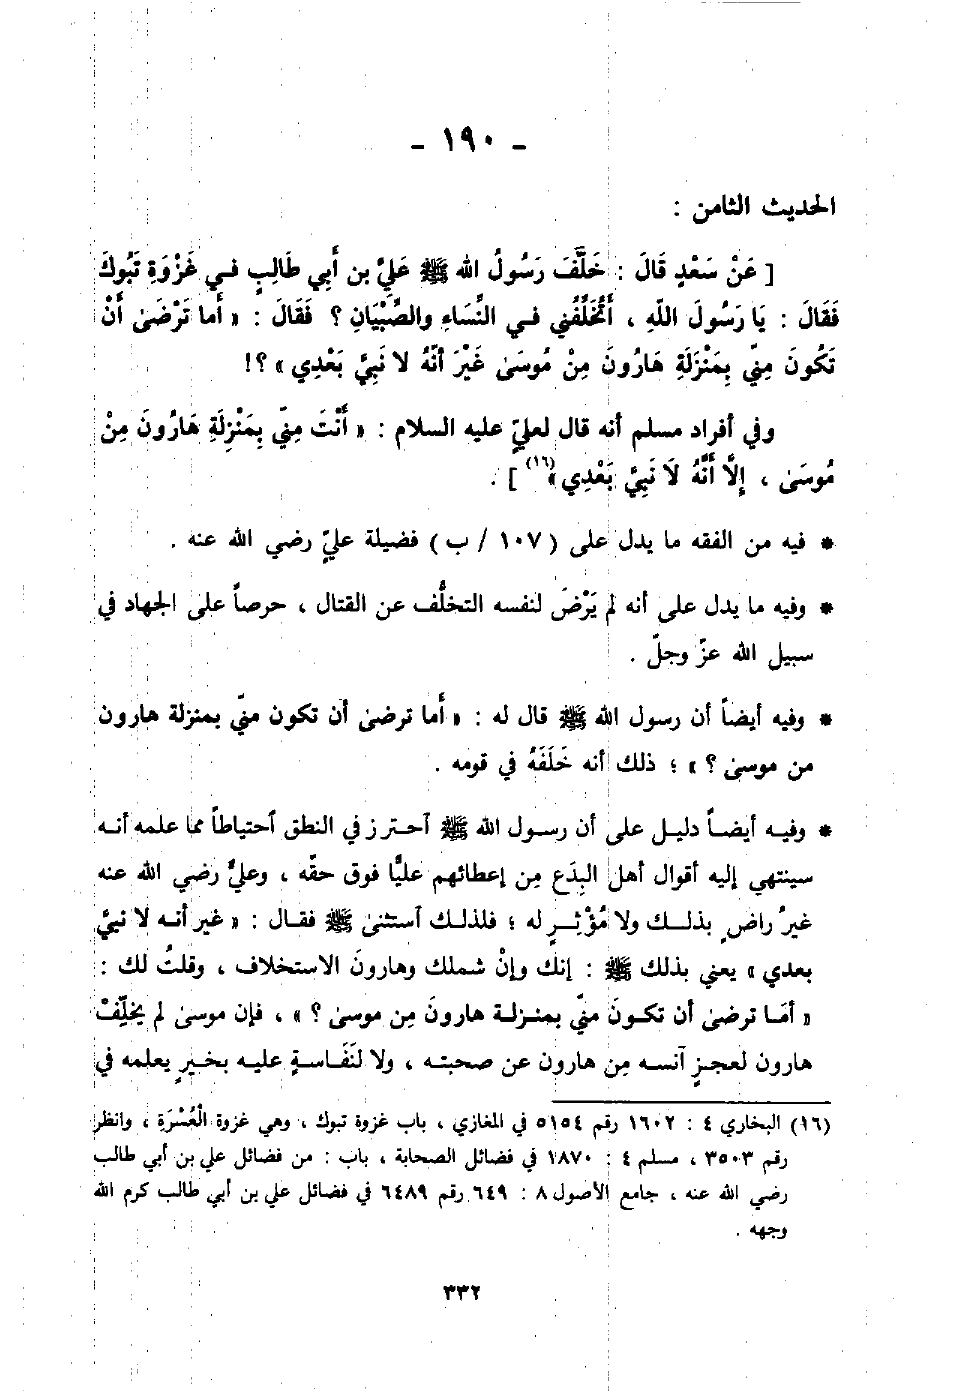 - ١٩٠ -
الحديث الثامن :
[ عَنْ سَعْدٍ قَالَ : خَلَّفَ رَسُولُ الله ﷺ عَليَّ بن أَبِي طَالِبٍ فـي غَزْوَةِ تَبُوكَ
فَقَالَ : يَا رَسُولَ اللّهِ ، أَتُخَلِّفُني فـي النِّسَاءِ والصِّبْيَانِ ؟ فَقَالَ : « أما تَرْضَىٰ أَنْ
تَكُونَ مِنّي بِمَنْزَلَةِ هَارُونَ مِنْ مُوسَىٰ غَيْرَ أنّهُ لا نَبِيَّ بَعْدِي » ؟!
وفي أفراد مسلم أنه قال لعليّ عليه السلام : « أَنْتَ مِنّي بِمَنْزِلَةِ هَارُونَ مِنْ
مُوسَىٰ ، إلَّا أَنَّهُ لَا نَبِيَّ بَعْدِي»(١٦) ] .
* فيه من الفقه ما يدل على ( ١٠٧ / ب ) فضيلة عليّ رضي الله عنه .
* وفيه ما يدل على أنه لم يَرْضَ لنفسه التخلُّف عن القتال ، حرصاً على الجهاد في
سبيل الله عزّ وجلّ .
* وفيه أيضاً أن رسول الله ﷺ قال له : « أَما ترضىٰ أن تكون منّي بمنزلة هارون
من موسىٰ ؟ » ؛ ذلك أنه خَلَفَهُ في قومه .
* وفيـه أيضـاً دليـل على أن رسـول الله ﷺ آحـترز في النطق آحتياطاً مما علمه أنـه
سينتهي إليه أقوال أهل البِدَع مِن إعطائهم عليًّا فوق حقّه ، وعليٌّ رضي الله عنه
غيرُ راضٍ بذلـك ولا مُؤْثِـرٍ له ؛ فلذلـك آستثنىٰ ﷺ فقـال : « غير أنـه لا نبيَّ
بعدي » يعني بذلك ﷺ : إنك وإنْ شملك وهارونَ الاستخلاف ، وقلتُ لك :
« أمَـا ترضىٰ أن تكـونَ منّي بمنـزلـة هارونَ مِن موسىٰ ؟ » ، فإن موسىٰ لم يخلِّفْ
هارون لعجـزٍ آنسـه مِن هارون عن صحبتـه ، ولا لنَفَاسـةٍ عليـه بخيـرٍ يعلمه في
(١٦) البخاري ٤ : ١٦٠٢ رقم ٥١٥٤ في المغازي ، باب غزوة تبوك ، وهي غزوة الْعُسْرَةِ ، وانظر
رقم ٣٥٠٣ ، مسلم ٤ : ١٨٧٠ في فضائل الصحابة ، باب : من فضائل علي بن أبي طالب
رضي الله عنه ، جامع الأصول ٨ : ٦٤٩ رقم ٦٤٨٩ في فضائل علي بن أبي طالب كرم الله
وجهه .
٣٣٢